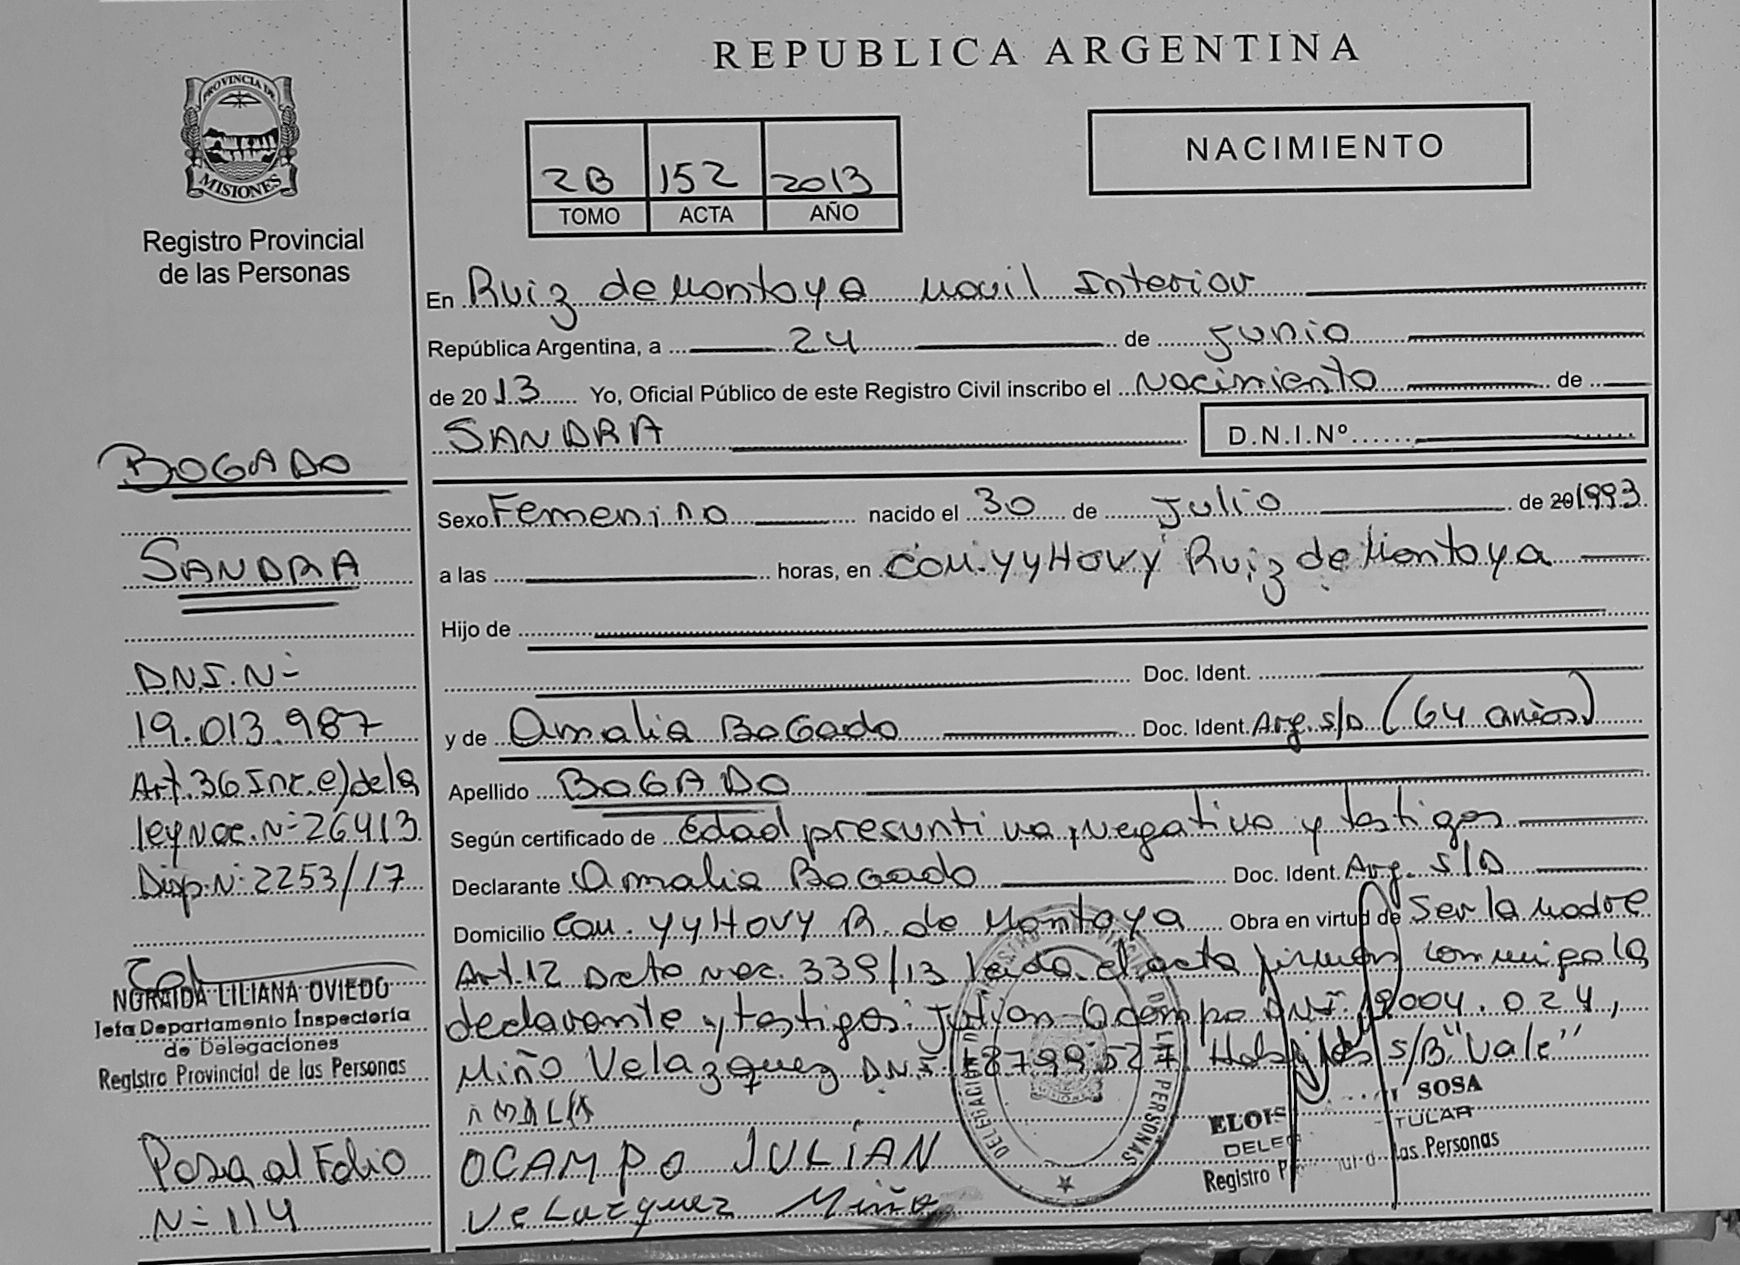 PROVINCIA DE
MISIONES
Registro Provincial
de las Personas
BOGADO
SANDRA
D.N.I. Nº
19.013.987
Art. 36 Inc. e) de la
ley nac. Nº 26.413
Disp. Nº 2253/17
NORAIDA LILIANA OVIEDO
Jefa Departamento Inspectoría
de Delegaciones
Registro Provincial de las Personas
Pasa al Folio
Nº 114
REPUBLICA ARGENTINA
2B 152 2013
TOMO ACTA AÑO
NACIMIENTO
En Ruiz de Montoya Movil Interior
República Argentina, a 24 de Junio
de 2013 Yo, Oficial Público de este Registro Civil inscribo el Nacimiento de
SANDRA D.N.I.Nº
Sexo Femenino nacido el 30 de Julio de 20 1993
a las horas, en Com. YYHOVY Ruiz de Montoya
Hijo de
Doc. Ident.
y de Amalia Bogado Doc. Ident. Arg. S/D (64 años)
Apellido BOGADO
Según certificado de Edad presuntiva, negativo y testigos
Declarante Amalia Bogado Doc. Ident. Arg. S/D
Domicilio Com. YYHOVY R. de Montoya Obra en virtud de Ser la madre
Art. 12 Dcto nac. 339/13 Leida el acta firman conmigo la
declarante y testigos: Julian Ocampo DNI 19004.024,
Miño Velazquez DNI 18799527 S/B "Vale"
AMALIA
OCAMPO JULIAN
Velazquez Miño
DELEGACION PERSONAS
ELOIS SOSA
TITULAR
Registro las Personas